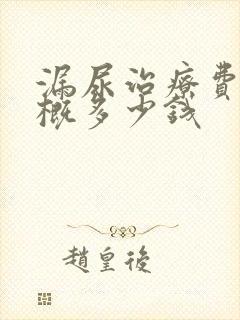 漏尿治療費
概多少錢
趙皇後